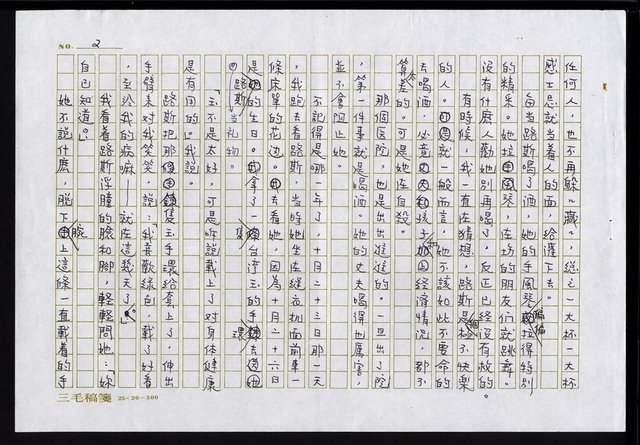 NO. 2
任何人，也不再躲、藏，總之一大杯一大杯
威士忌就當着人的面，給灌下去。
每當路斯喝了酒，她的手風琴偏偏拉得特別
的精采。她拉手風琴，在場的朋友們就跳舞。
沒有什麼人勸她別再喝了，反正已經沒有救的。
有時候，我一直在猜想，路斯是個極不快樂
的人。可是就一般而言，她不該如此不要命的
去喝酒，必竟丈夫和孩子還加上經濟情況，都不
算太差的。可是她在自殺。
那個医院，也是出出進進的。一旦出了院
，第一件事就是喝酒。她的丈夫喝得也厲害，
並不會阻止她。
不記得是哪一年了，十月二十三日那一天
，我跑去看路斯，當時她坐在縫衣机面前車一
條床單的花边。去看她，因為十月二十六日
是她的生日。我拿了一隻台湾玉的手環去
路斯当礼物。
「玉不是太好，可是听說戴上了对身体健康
是有用的。」我說。
路斯把那隻玉手環給套上了，伸出
手臂來对我笑笑，說：「我喜歡綠色，戴了好看
，至於我的病嘛——就在這幾天了。」
我看着路斯浮腫的臉和腳，輕輕問她：「妳
自己知道？」
她不說什麼，脫下腕上這條一直戴着的手
三毛稿箋 25×20=500